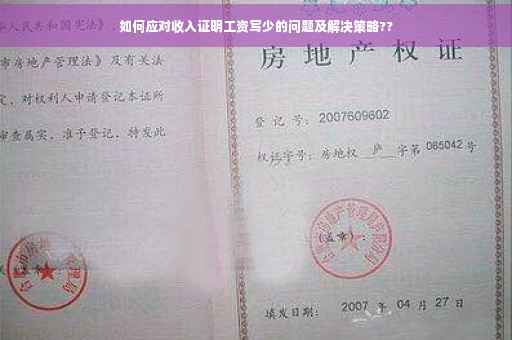 如何应对收入证明工资写少的问题及解决策略??
人民共和国宪法》、
市房地产管理法》及有关法
定，对权利人申请登记本证所
审查属实，准予登记，特发此
房地产权证
登记号：2007609602
权证字号：房地权 庐 字第 065042 号
(盖章)：
填发日期： 2007 年 04 月 27 日